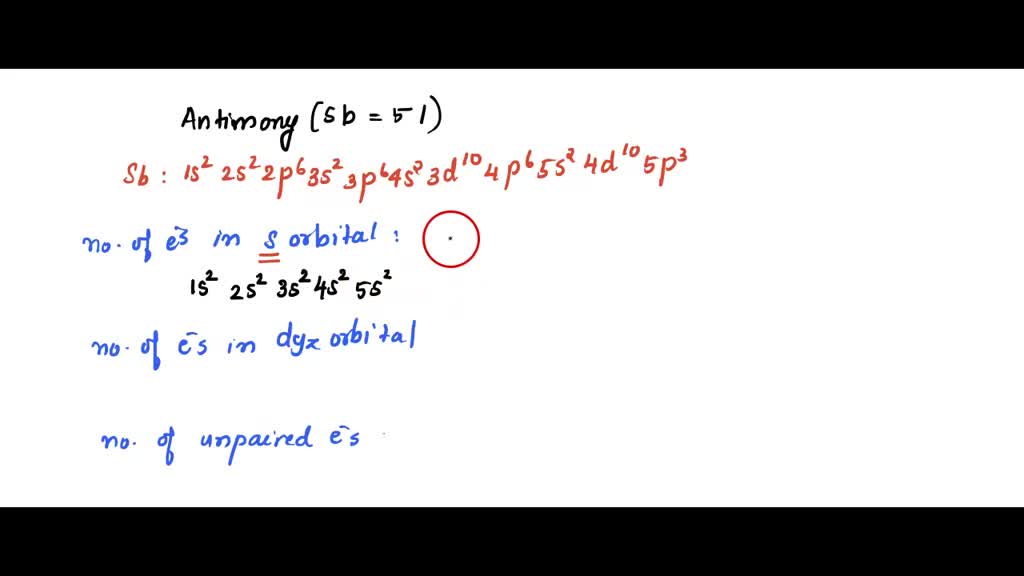 Antimony (Sb = 51)
Sb : 1s² 2s² 2p⁶ 3s² 3p⁶ 4s² 3d¹⁰ 4p⁶ 5s² 4d¹⁰ 5p³
no. of e⁻s in s orbital :
1s² 2s² 3s² 4s² 5s²
no. of e⁻s in dyz orbital
no. of unpaired e⁻s